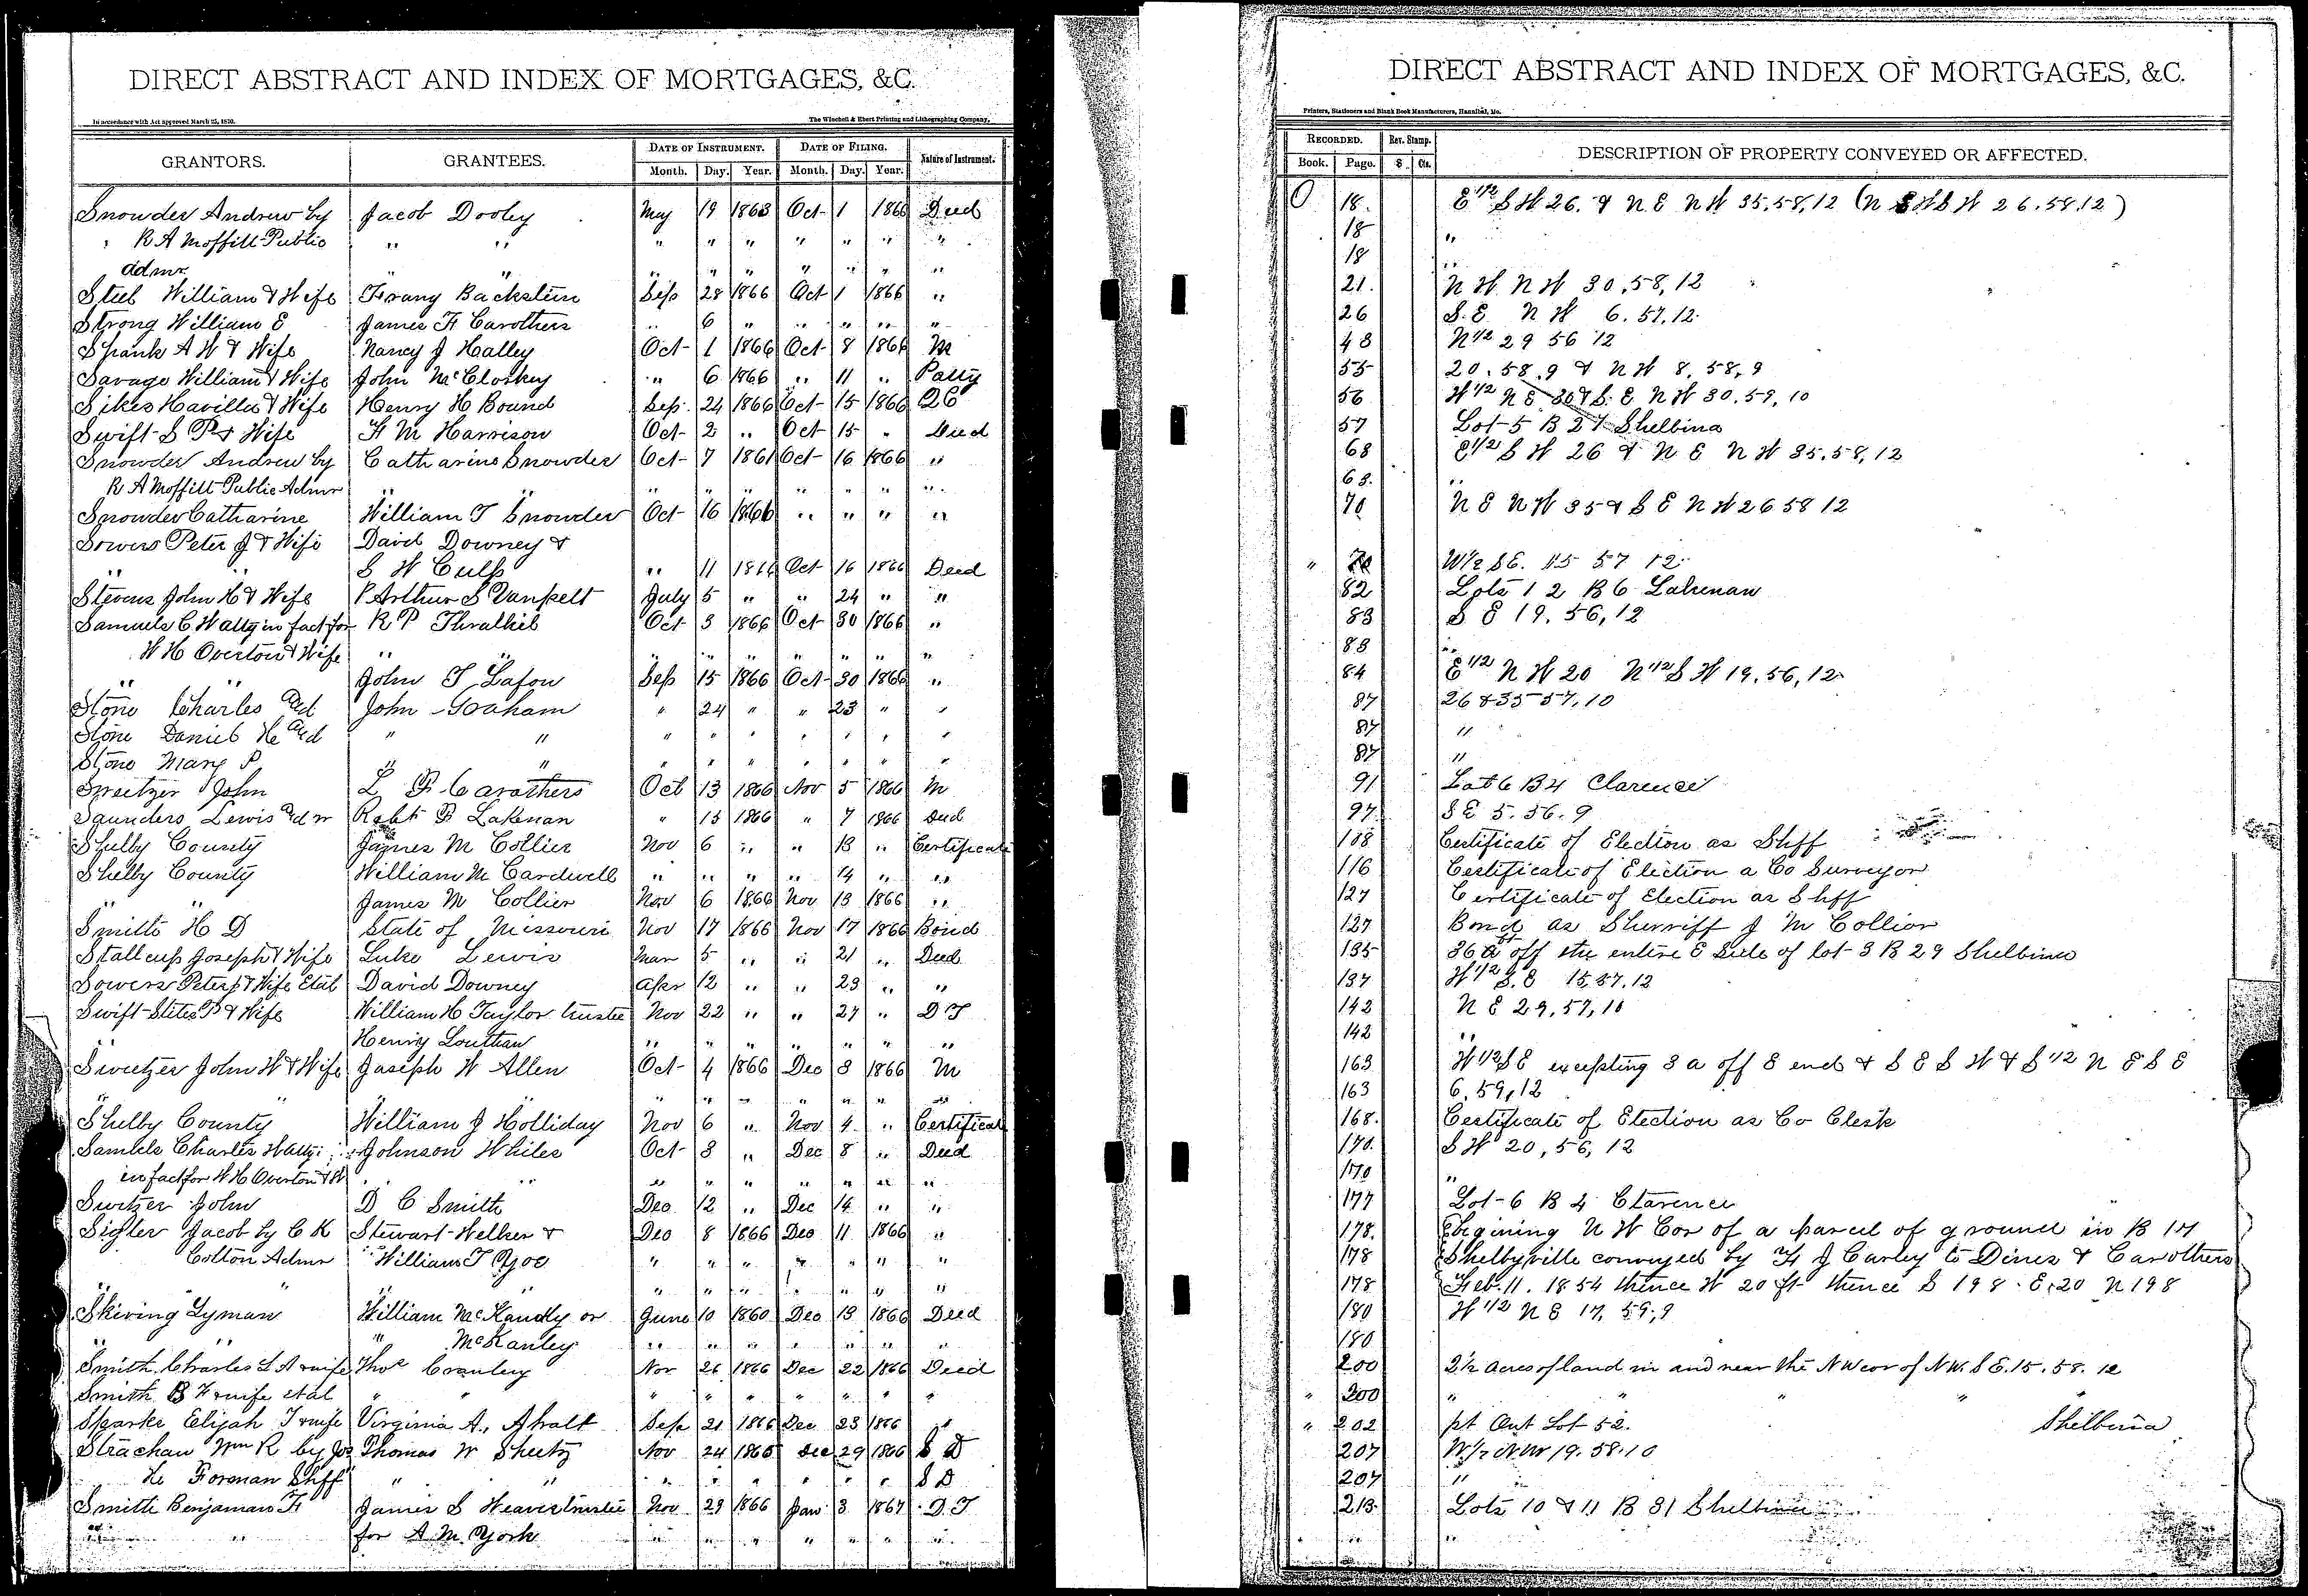 DIRECT ABSTRACT AND INDEX OF MORTGAGES, &C.
In accordance with Act approved March 25, 1870.
The Winchell & Ebert Printing and Lithographing Company,
GRANTORS. GRANTEES. DATE OF INSTRUMENT. DATE OF FILING. Nature of Instrument.
Month. Day. Year. Month. Day. Year.
Snowder Andrew by Jacob Dooley May 19 1863 Oct 1 1866 Deed
" R A Moffitt Public " " " " " " " " "
Admr " " " " " " " " "
Steel William & Wife Backstein Sep 28 1866 Oct 1 1866 "
Strong William E James H Carothers " 6 " " " " "
Shank A W & Wife Nancy J Halley Oct 1 1866 Oct 8 1866 M
Savage William & Wife John McCloskey " 6 1866 " 11 " Patty
Sikes Havilla & Wife Henry H Bound Sep 24 1866 Oct 15 1866 QC
Swift S P & Wife H M Harrison Oct 2 " Oct 15 " Deed
Snowder Andrew by Catharine Snowder Oct 7 1861 Oct 16 1866 "
R A Moffitt Public Admr " " " " " " " " "
Snowder Catharine William T Snowder Oct 16 1866 " " " "
Sowers Peter J & Wife David Downey &
" S W Culp " 11 1866 Oct 16 1866 Deed
Stevens John H & Wife P Arthur S Vanpelt July 5 " " 24 " "
Samuels C W atty in fact for R P Thralkil Oct 3 1866 Oct 30 1866 "
W H Overton & Wife " " " " " " " " "
" " John T Lafon Sep 15 1866 Oct 30 1866 "
Stone Charles John Graham " 24 " " 23 " "
Stone Daniel H " " " " " " " " "
Stone Mary P. " " " " " " " " "
Sweitzer John L F Carothers Oct 13 1866 Nov 5 1866 M
Saunders Lewis adm Robt B Lakenan " 15 1866 " 7 1866 Deed
Shelby County James M Collier Nov 6 " " 13 " Certificate
Shelby County William M Cardwell " " " " 14 " "
" " James M Collier Nov 6 1866 Nov 13 1866 "
Smith H D State of Missouri Nov 17 1866 Nov 17 1866 Bond
Stallcup Joseph & Wife Luke Lewis Mar 5 " " 21 " Deed
Sowers Peter J & Wife Etal David Downey Apr 12 " " 23 " "
Swift Stites P & Wife William H Taylor trustee Nov 22 " " 27 " D T
" Henry Louthan " " " " " " "
Sweetzer John W & Wife Joseph W Allen Oct 4 1866 Dec 3 1866 M
" " " " " " " "
Shelby County William J Holliday Nov 6 " Nov 4 " Certificat
Samuels Charles W atty Johnson Whiles Oct 3 " Dec 8 " Deed
in fact for W H Overton & W " " " " " " " "
Switzer John D C Smith Dec 12 " Dec 14 " "
Sigler Jacob by C K Stewart Welker & Dec 8 1866 Dec 11 1866 "
Cotton Admr William T Yoe " " " " " " "
" " " " " " " " "
Skiving Lyman William McKandly or June 10 1860 Dec 13 1866 Deed
" " " McKanley " " " " " " "
Smith Charles L & wife Thos Cranley Nov 26 1866 Dec 22 1866 Deed
Smith B F & wife etal " " " " " " " " "
Sparks Elijah T & wife Virginia A. Ahalt Sep 21 1866 Dec 23 1866 "
Strachan Wm R by Jos Thomas W Sheetz Nov 24 1865 Dec 29 1866 S D
H Forman Shff " " " " " " " " S D
Smith Benjamin F James S Weaver trustee Nov 29 1866 Jan 3 1867 D.T
" " for A. M. York " " " " " " "
DIRECT ABSTRACT AND INDEX OF MORTGAGES, &C.
Printers, Stationers and Blank Book Manufacturers, Hannibal, Mo.
RECORDED. Rev. Stamp. DESCRIPTION OF PROPERTY CONVEYED OR AFFECTED.
Book. Page. $. Cts.
O 18. E 1/2 S W 26. & N E N W 35, 58, 12 (N E W S W 26. 58. 12)
18 "
18 "
21. N W N W 30, 58, 12
26 S. E N W 6. 57. 12.
48 N 1/2 29 56 12
55 20. 58. 9 & N W 8, 58, 9
56 W 1/2 N E 30 & S. E N W 30. 59, 10
57 Lot 5 B 27 Shelbina
68 E 1/2 S W 26 & N E N W 35. 58, 12
68. "
70 N E N W 35 & S E N W 26 58 12
" 76 W 1/2 S E. 15 57 12.
82 Lots 1 2 B 6 Lakenan
83 S E 19. 56, 12
83 "
84 E 1/2 N W 20 N 1/2 S W 19, 56, 12
87 26 & 35 57, 10
87 "
87 "
91 Lot 6 B 4 Clarence
97. S E 5. 56. 9
108 Certificate of Election as Shff
116 Certificate of Election a Co Surveyor
127 Certificate of Election as Shff
127 Bond as Sherriff J M Collier
135 36 ft off the entire E side of lot 3 B 29 Shelbina
137 W 1/2 S. E 15. 57. 12
142 N E 29, 57, 10
142 "
163 W 1/2 S E excepting 3 a off E end & S E S W & S 1/2 N E S E
163 6, 59, 12
168. Certificate of Election as Co Clerk
170. S W 20, 56, 12
170 "
177 Lot 6 B 4 Clarence
178. Begining N W Cor of a parcel of ground in B 17
178 Shelbyville conveyed by H J Carley to Dines & Carothers
178 Feb. 11. 1854 thence W 20 ft thence S 198. E. 20 N 198
180 W 1/2 N E 17, 59, 9
180
200 2 1/2 Acres of land in and near the N W cor of N W. S E. 15. 58. 12
" 200 " " " " "
" 202 pt Out Lot 52. Shelbina
207 W 1/2 N W 19. 58. 10
207 "
213. Lots 10 & 11 B 31 Shelbina
" " "